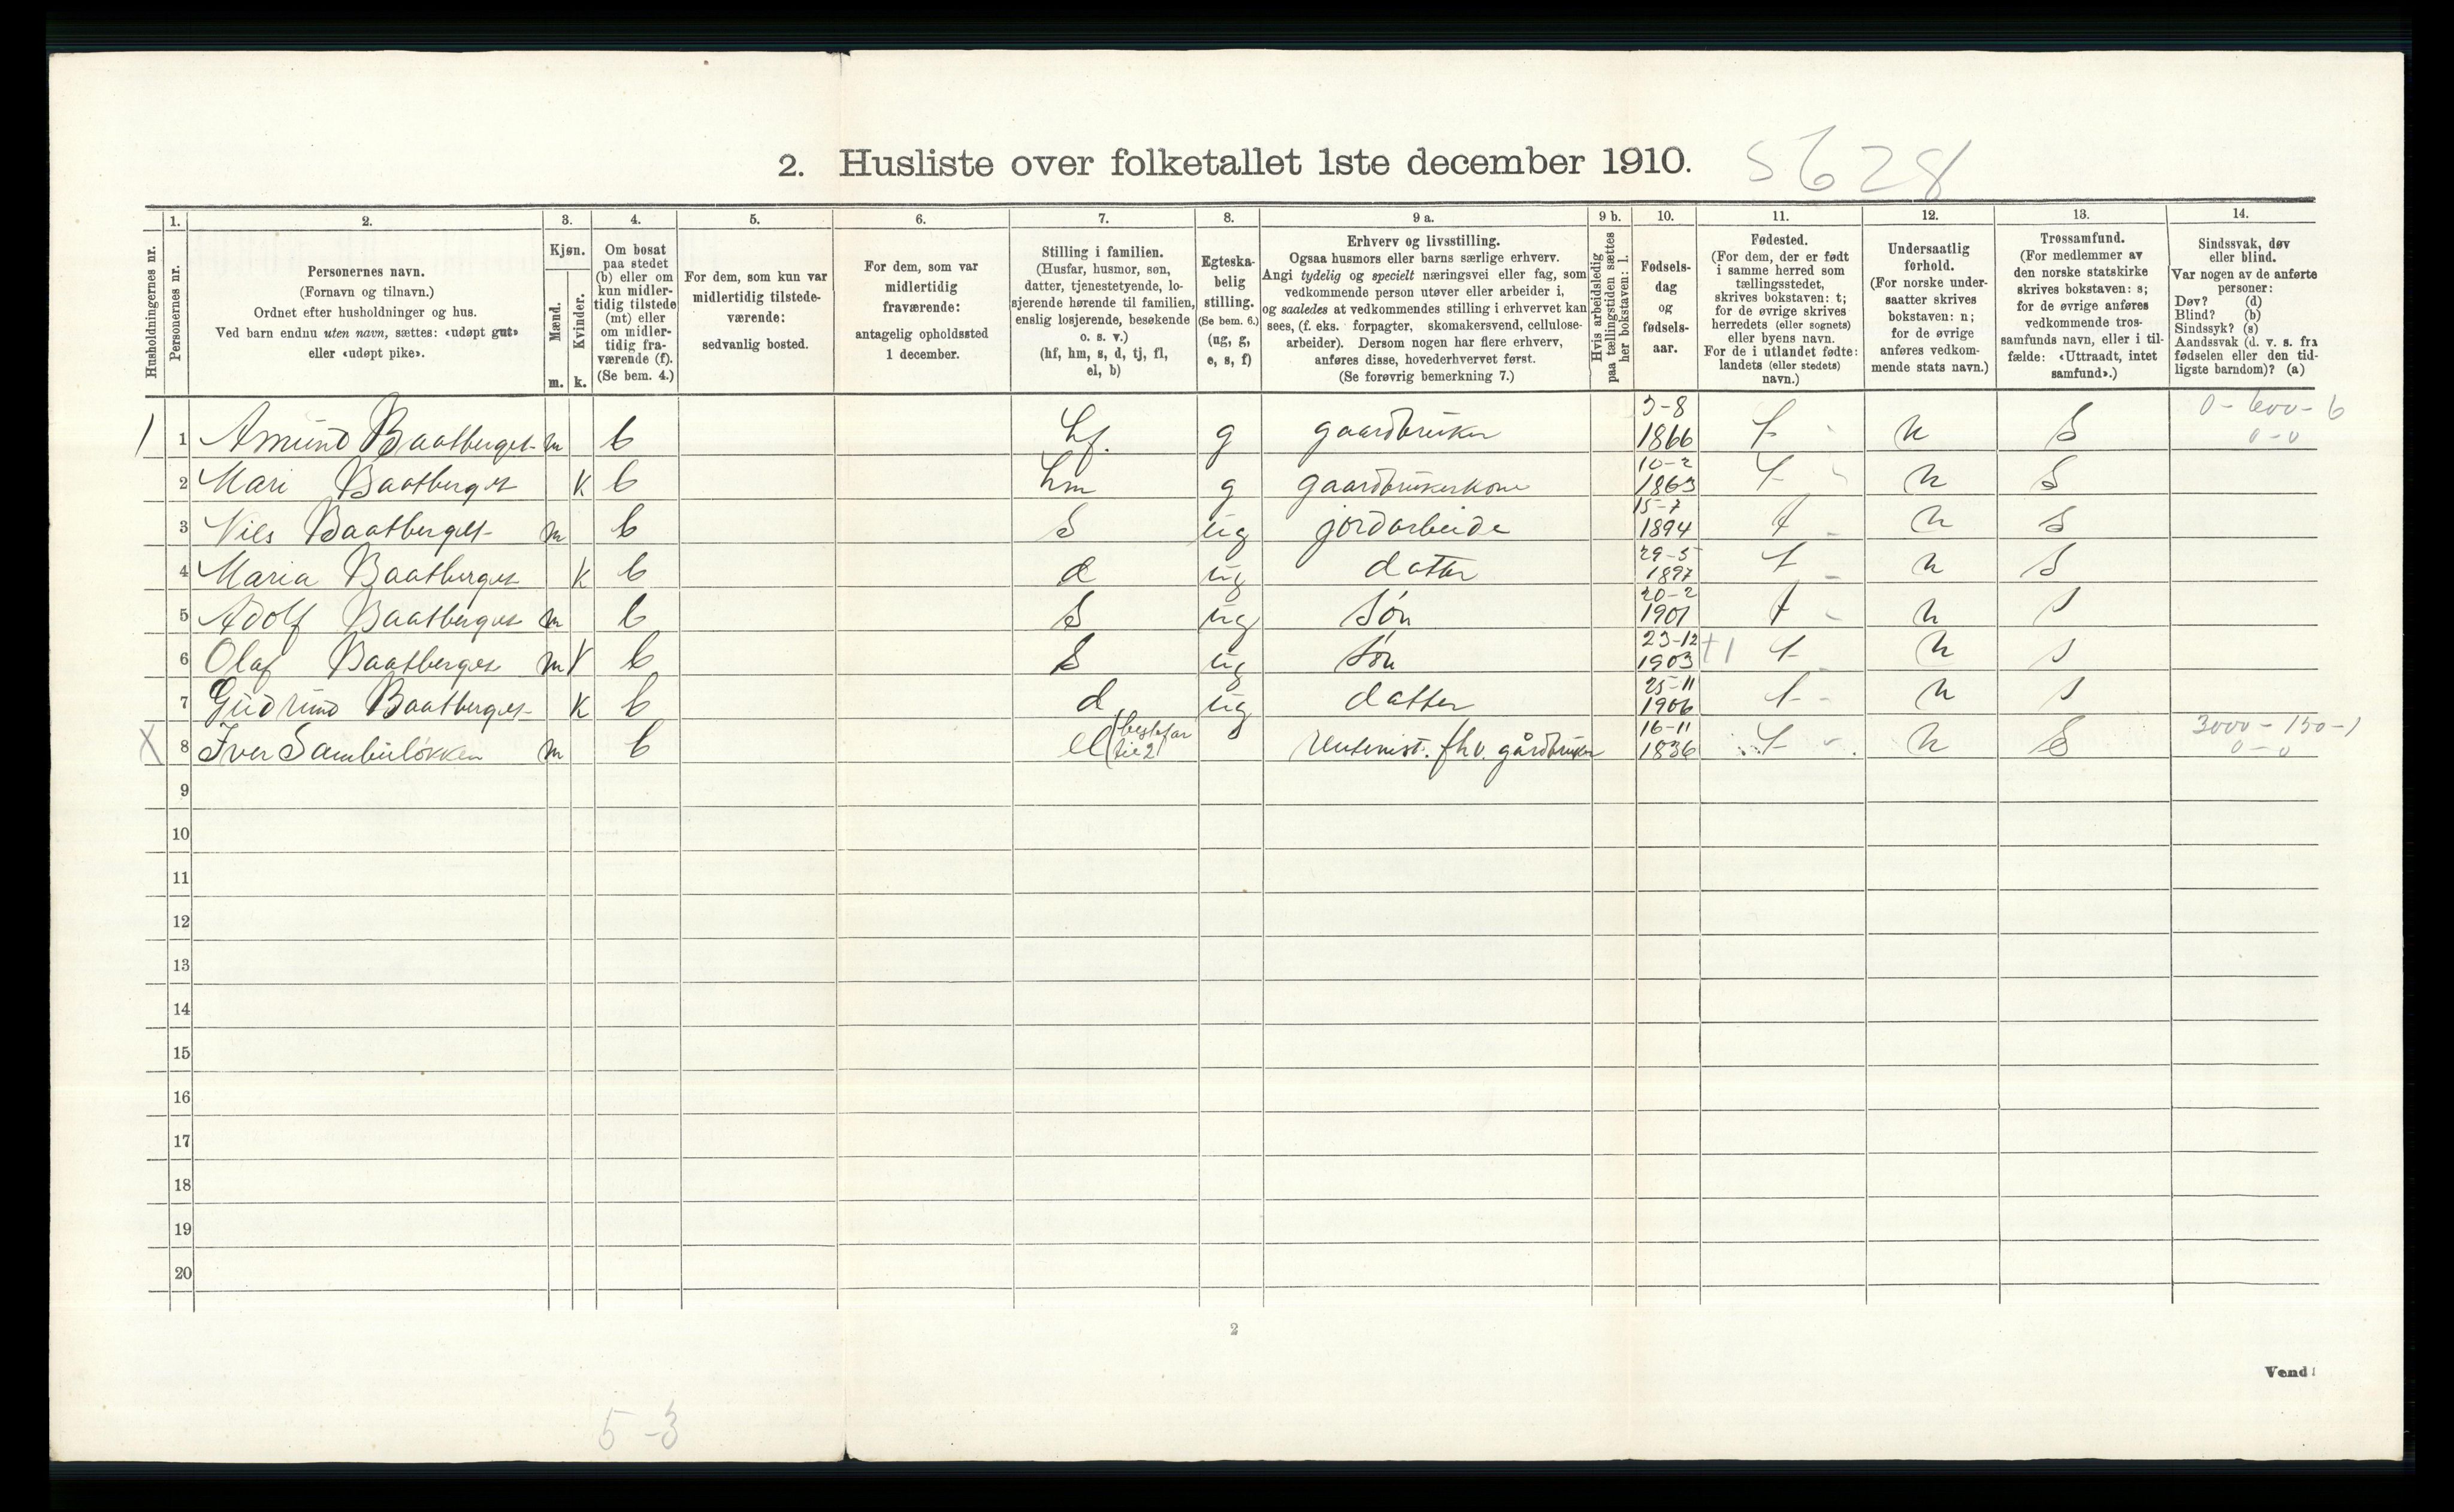 2. Husliste over folketallet 1ste december 1910.
5628
Husholdningernes nr.
1.
Personernes nr.
2.
Personernes navn.
(Fornavn og tilnavn.)
Ordnet efter husholdninger og hus.
Ved barn endnu uten navn, sættes: «udøpt gut»
eller «udøpt pike».
3.
Kjøn.
Mænd.
Kvinder.
m. k.
4.
Om bosat
paa stedet
(b) eller om
kun midler-
tidig tilstede
(mt) eller
om midler-
tidig fra-
værende (f).
(Se bem. 4.)
5.
For dem, som kun var
midlertidig tilstede-
værende:
sedvanlig bosted.
6.
For dem, som var
midlertidig
fraværende:
antagelig opholdssted
1 december.
7.
Stilling i familien.
(Husfar, husmor, søn,
datter, tjenestetyende, lo-
sjerende hørende til familien,
enslig losjerende, besøkende
o. s. v.)
(hf, hm, s, d, tj, fl,
el, b)
8.
Egteska-
belig
stilling.
(Se bem. 6.)
(ug, g,
e, s, f)
9 a.
Erhverv og livsstilling.
Ogsaa husmors eller barns særlige erhverv.
Angi tydelig og specielt næringsvei eller fag, som
vedkommende person utøver eller arbeider i,
og saaledes at vedkommendes stilling i erhvervet kan
sees, (f. eks. forpagter, skomakersvend, cellulose-
arbeider). Dersom nogen har flere erhverv,
anføres disse, hovederhvervet først.
(Se forøvrig bemerkning 7.)
9 b.
Hvis arbeidsledig
paa tællingstiden sættes
her bokstaven: l.
10.
Fødsels-
dag
og
fødsels-
aar.
11.
Fødested.
(For dem, der er født
i samme herred som
tællingsstedet,
skrives bokstaven: t;
for de øvrige skrives
herredets (eller sognets)
eller byens navn.
For de i utlandet fødte:
landets (eller stedets)
navn.)
12.
Undersaatlig
forhold.
(For norske under-
saatter skrives
bokstaven: n;
for de øvrige
anføres vedkom-
mende stats navn.)
13.
Trossamfund.
(For medlemmer av
den norske statskirke
skrives bokstaven: s;
for de øvrige anføres
vedkommende tros-
samfunds navn, eller i til-
fælde: «Uttraadt, intet
samfund».)
14.
Sindssvak, døv
eller blind.
Var nogen av de anførte
personer:
Døv? (d)
Blind? (b)
Sindssyk? (s)
Aandssvak (d. v. s. fra
fødselen eller den tid-
ligste barndom)? (a)
1 1 Amund Baatberget m b hf. g gaardbruker 3-8 1866 t n S 0-600-6 0-0
2 Mari Baatberget k b hm g gaardbrukerkone 10-2 1863 t n S
3 Nils Baatberget m b S ug jordarbeide 15-7 1894 t n S
4 Maria Baatberget k b d ug datter 29-5 1897 t n S
5 Adolf Baatberget m b S ug Søn 20-2 1901 t n s
6 Olaf Baatberget m b S ug Søn 23-12 1903 t n s
7 Gudrund Baatberget k b d ug datter 25-11 1906 t n s
X 8 Iver m b el (bestefar g 16-11 1836 t n S 3000-150-1 0-0
fhv. gårdbruker
9
10
11
12
13
14
15
16
17
18
19
20
2
Vend!
5-3